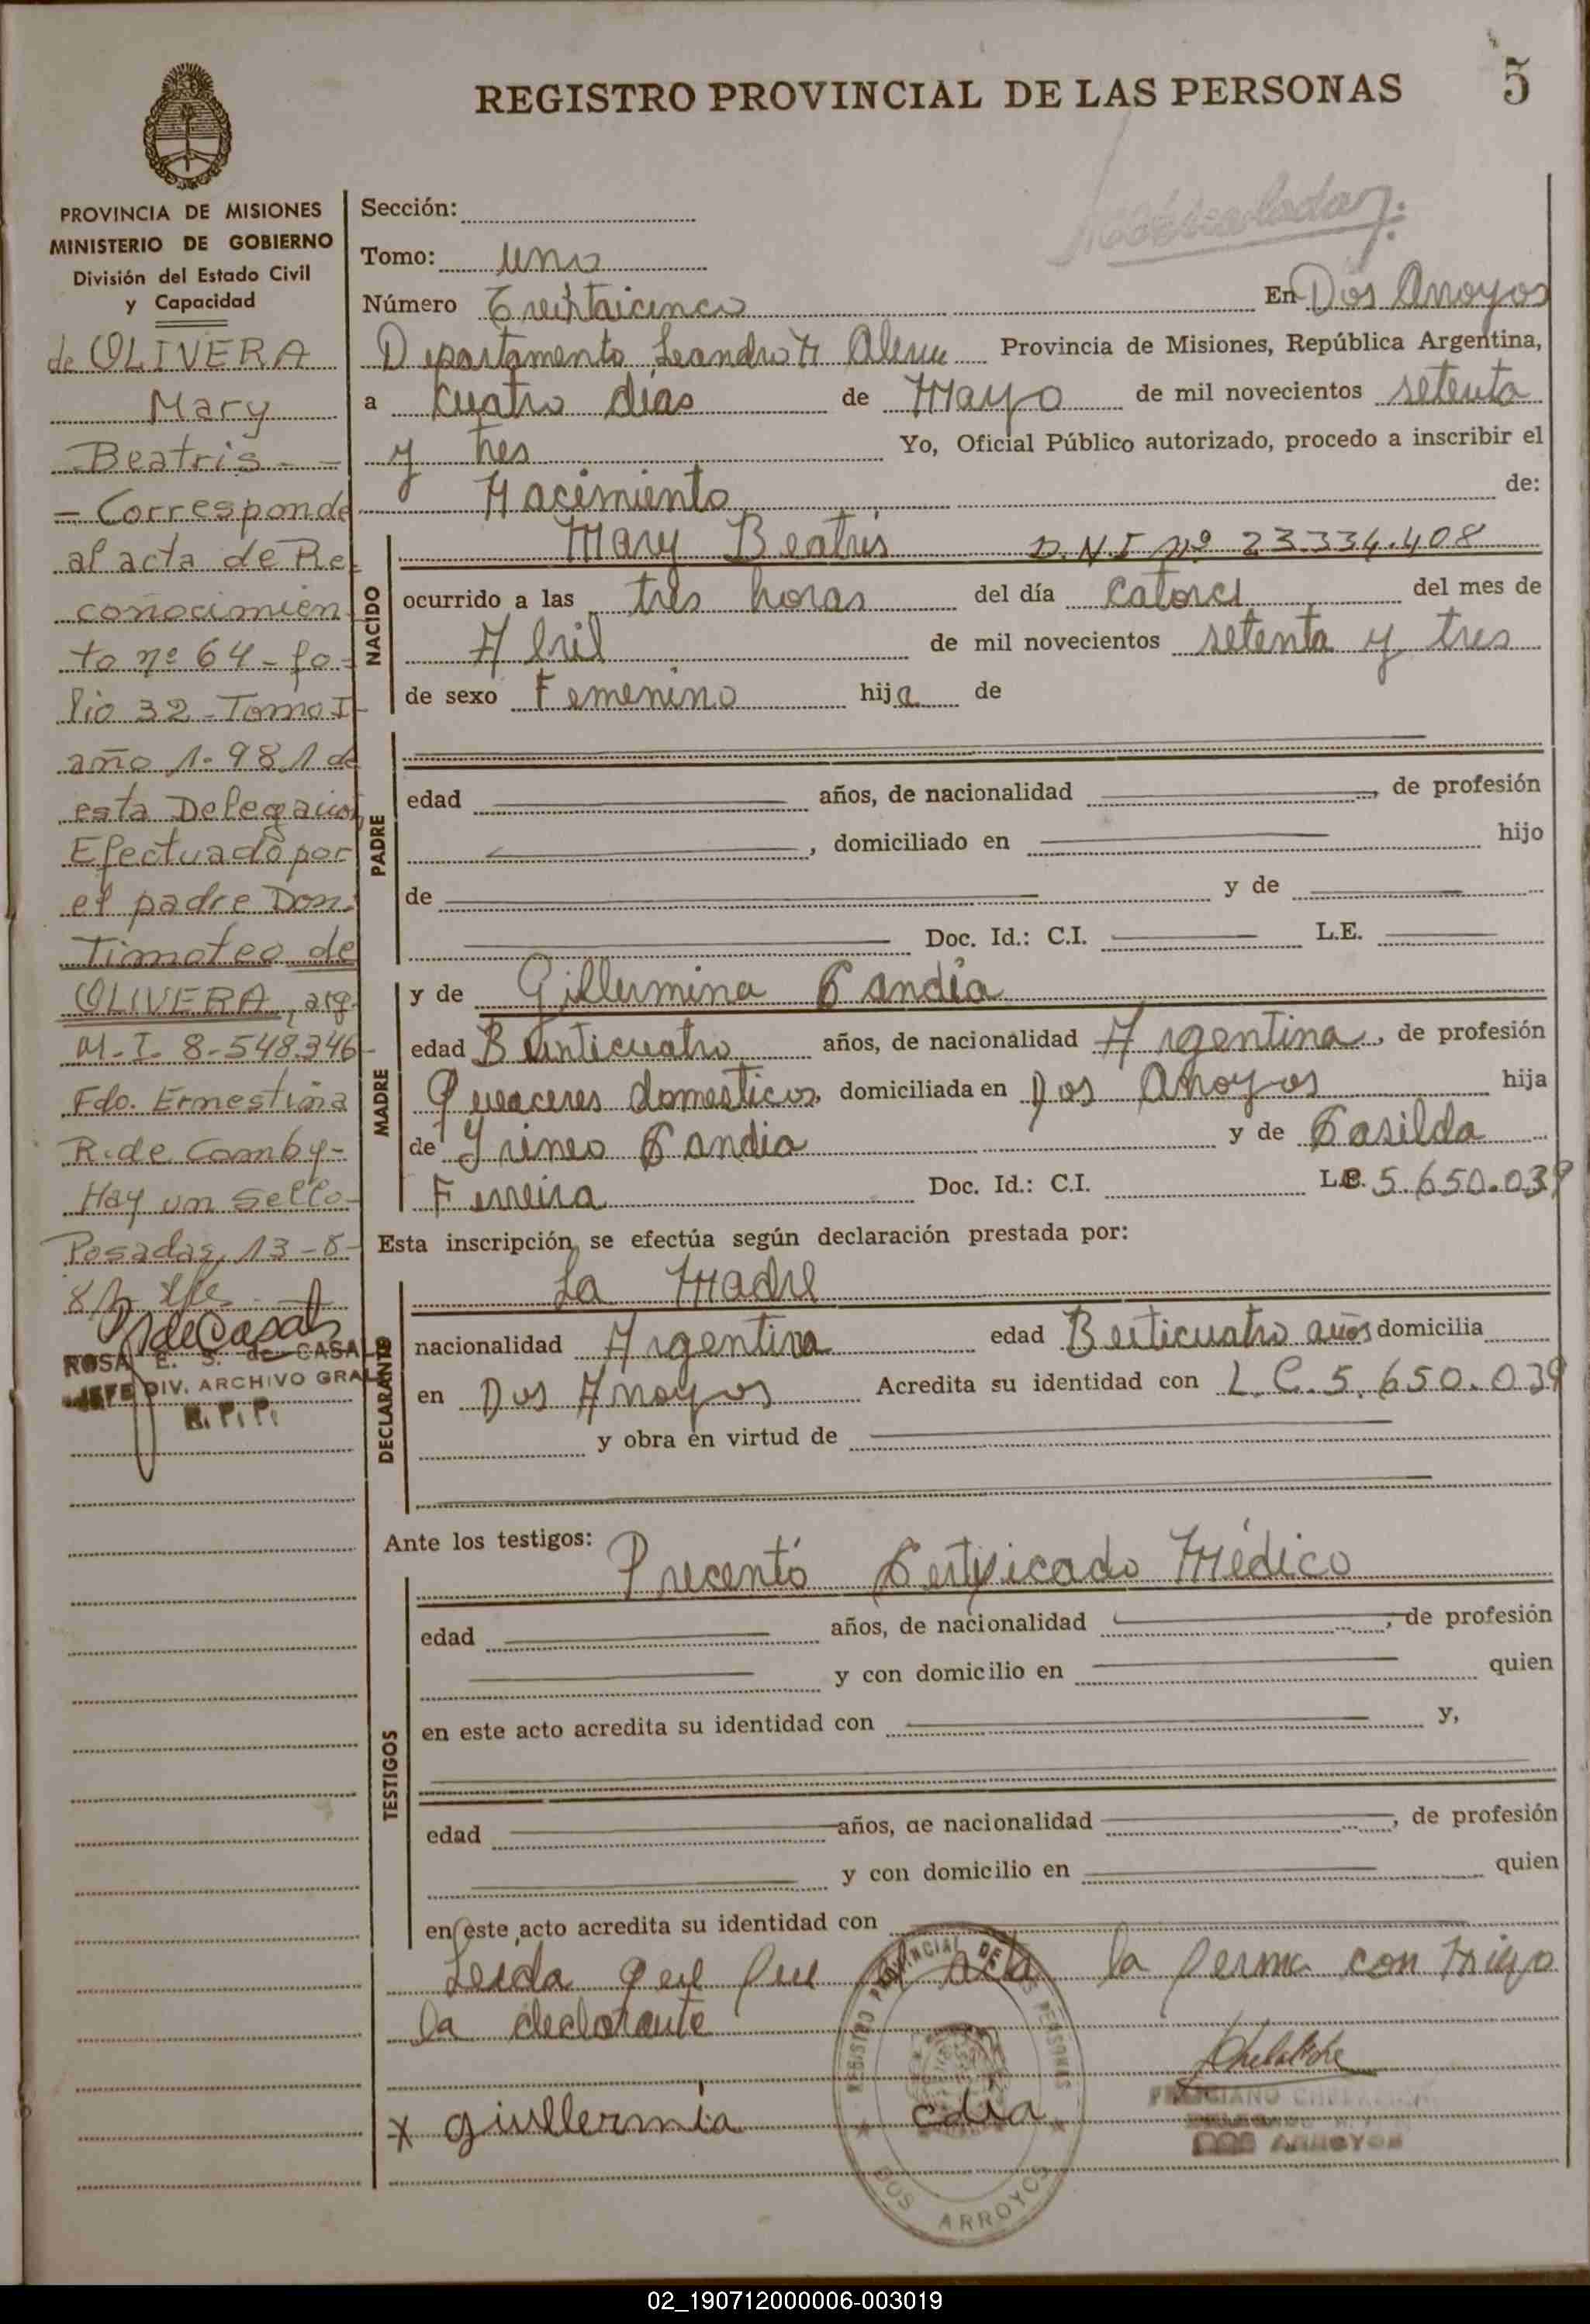 REGISTRO PROVINCIAL DE LAS PERSONAS
5
PROVINCIA DE MISIONES
MINISTERIO DE GOBIERNO
División del Estado Civil
y Capacidad
de OLIVERA
Mary
Beatris
- Corresponde
al acta de Re
conocimien
to nº 64 - fo
lio 32 - Tomo I
año 1.981 de
esta Delegacion
Efectuado por
el padre Don
Timoteo de
OLIVERA, arg.
M.I. 8.548.346
Fdo. Ernestina
R. de Comby -
Hay un sello
Posadas, 13-8-
ROSA E. S. de CASALS
JEFE DIV. ARCHIVO GRAL
R.P.P.
Sección:
Tomo: uno
Número Treintaicinco En Dos Arroyos
Departamento Leandro N Alem Provincia de Misiones, República Argentina,
a cuatro dias de Mayo de mil novecientos setenta
y tres Yo, Oficial Público autorizado, procedo a inscribir el
Nacimiento de:
NACIDO
Mary Beatris D.N.I nº 23.334.408
ocurrido a las tres horas del día catorce del mes de
Abril de mil novecientos setenta y tres
de sexo Femenino hija de
PADRE
edad años, de nacionalidad , de profesión
, domiciliado en hijo
de y de
Doc. Id.: C.I. L.E.
MADRE
y de Gillermina Candia
edad Beinticuatro años, de nacionalidad Argentina, de profesión
Queaceres domesticos, domiciliada en Dos Arroyos hija
de Irineo Candia y de Casilda
Ferreira Doc. Id.: C.I. L.C. 5.650.039
Esta inscripción se efectúa según declaración prestada por:
DECLARANTE
La Madre
nacionalidad Argentina edad Beiticuatro años domicilia
en Dos Arroyos Acredita su identidad con L.C. 5.650.039
y obra en virtud de
Ante los testigos:
TESTIGOS
Precentó Certificado Médico
edad años, de nacionalidad , de profesión
y con domicilio en quien
en este acto acredita su identidad con y,
edad años, de nacionalidad , de profesión
y con domicilio en quien
en este acto acredita su identidad con
Leida que fue acta la ferma con migo
la declarante
REGISTRO PROVINCIAL DE LAS PERSONAS
DOS ARROYOS
x giullermia cdia
DOS ARROYOS
02_190712000006-003019